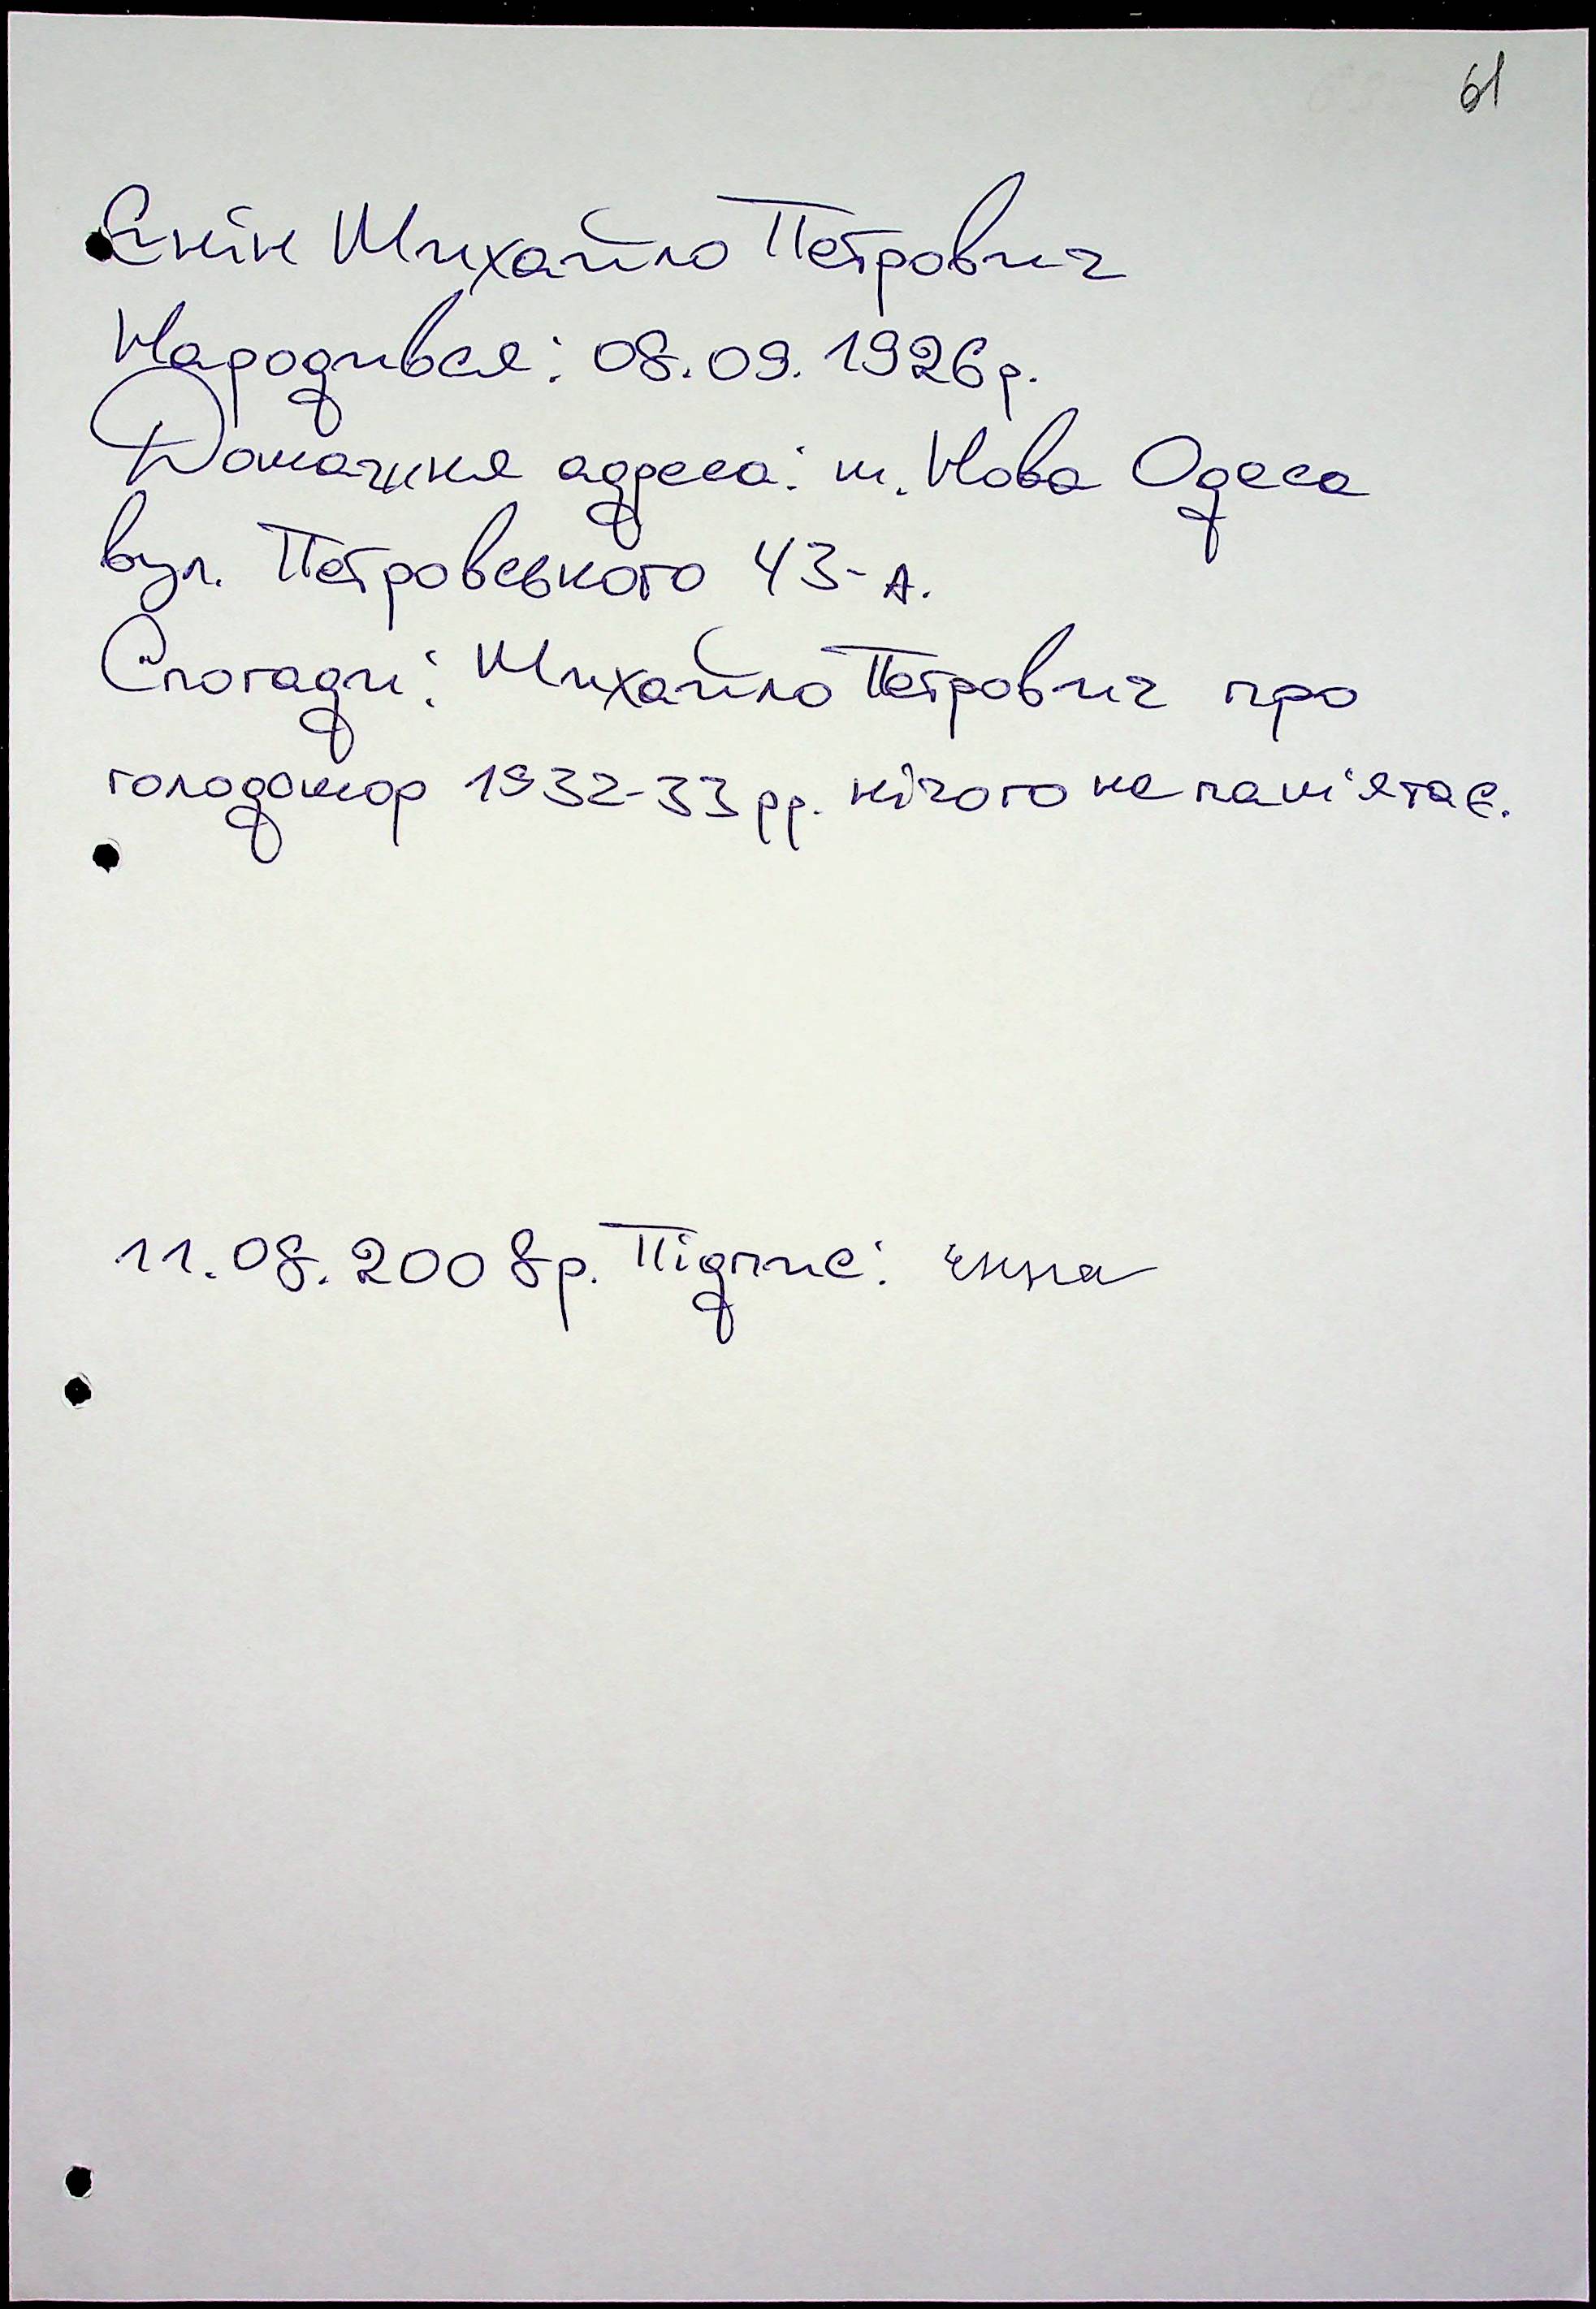 61
Єнін Михайло Петрович
Народився: 08.09.1926р.
Домашня адреса: м. Нова Одеса
вул. Петровського 43-А.
Спогади: Михайло Петрович про
голодомор 1932-33 рр. нічого не пам'ятає.
11.08.2008р. Підпис: